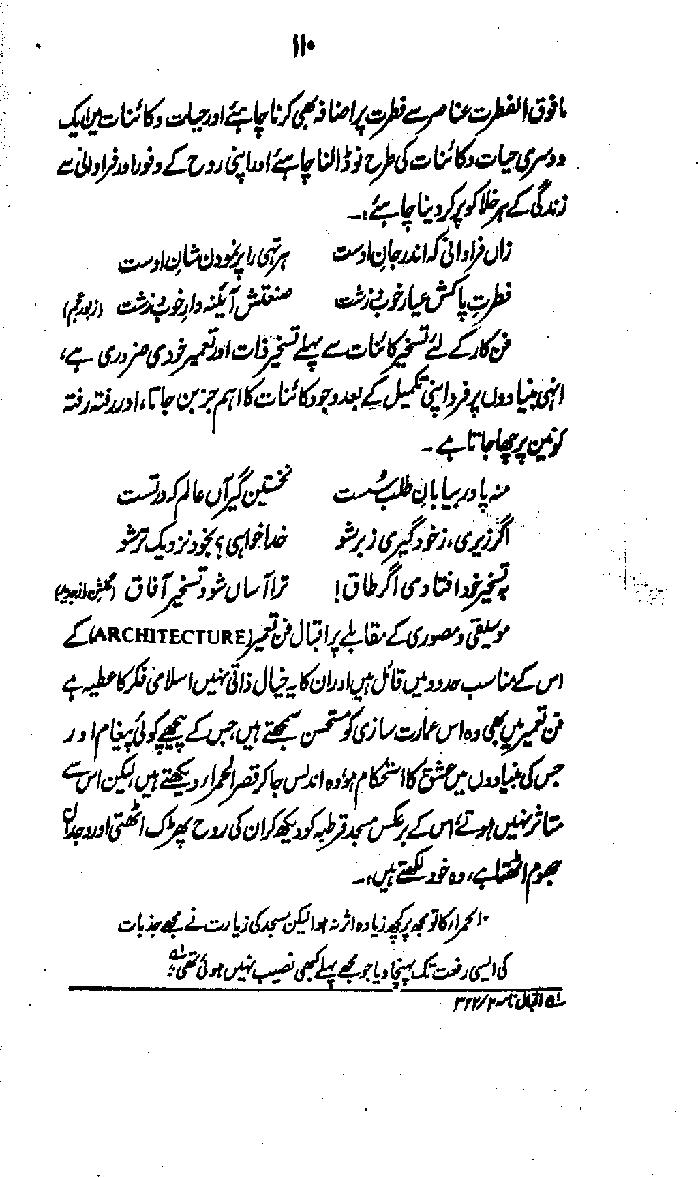 ۱۱۰
مافوق الفطرت عناصر سے فطرت پر اضافہ بھی کرنا چاہئے اور حیات و کائنات میں ایک
دوسری حیات و کائنات کی طرح نو ڈالنا چاہئے اور اپنی روح کے وفور اور فراوانی سے
زندگی کے ہر خلا کو پر کر دینا چاہئے:۔
زاں فراوانی کہ اندر جانِ اوست ہر تہی را پر نمودن شانِ اوست
فطرتِ پاکش عیارِ خوب و زشت صنعتش آئینہ دارِ خوب و زشت (زبورِ عجم)
فن کار کے لئے تسخیرِ کائنات سے پہلے تسخیرِ ذات اور تعمیرِ خودی ضروری ہے،
انہی بنیادوں پر فرد اپنی تکمیل کے بعد وجود کائنات کا اہم جز بن جاتا، اور رفتہ رفتہ
کونین پر چھا جاتا ہے۔
منہ پا در بیابانِ طلب سُست نخستین گیر آں عالم کہ در تست
اگر زیری، ز خود گیری زبر شو خدا خواہی؟ بخود نزدیک تر شو
بہ تسخیرِ خود افتادی اگر طاق! ترا آساں شود تسخیرِ آفاق (گلشن راز جدید)
موسیقی و مصوری کے مقابلے پر اقبال فنِ تعمیر (ARCHITECTURE) کے
اس کے مناسب حدود میں قائل ہیں اور ان کا یہ خیال ذاتی نہیں اسلامی فکر کا عطیہ ہے
فن تعمیر میں بھی وہ اس عمارت سازی کو مستحسن سمجھتے ہیں، جس کے پیچھے کوئی پیغام اور
جس کی بنیادوں میں عشق کا استحکام ہو، وہ اندلس جا کر قصر الحمراء دیکھتے ہیں لیکن اس سے
متاثر نہیں ہوتے، اس کے برعکس مسجد قرطبہ کو دیکھ کر ان کی روح پھڑک اٹھتی اور وجدان
جھوم اٹھتا ہے، وہ خود لکھتے ہیں:۔
"الحمراء کا تو مجھ پر کچھ زیادہ اثر نہ ہوا لیکن مسجد کی زیارت نے مجھے جذبات
کی ایسی رفعت تک پہنچا دیا جو مجھے پہلے کبھی نصیب نہیں ہوئی تھی"؎۱
؎۱ اقبال نامہ ۲/۳۲۲